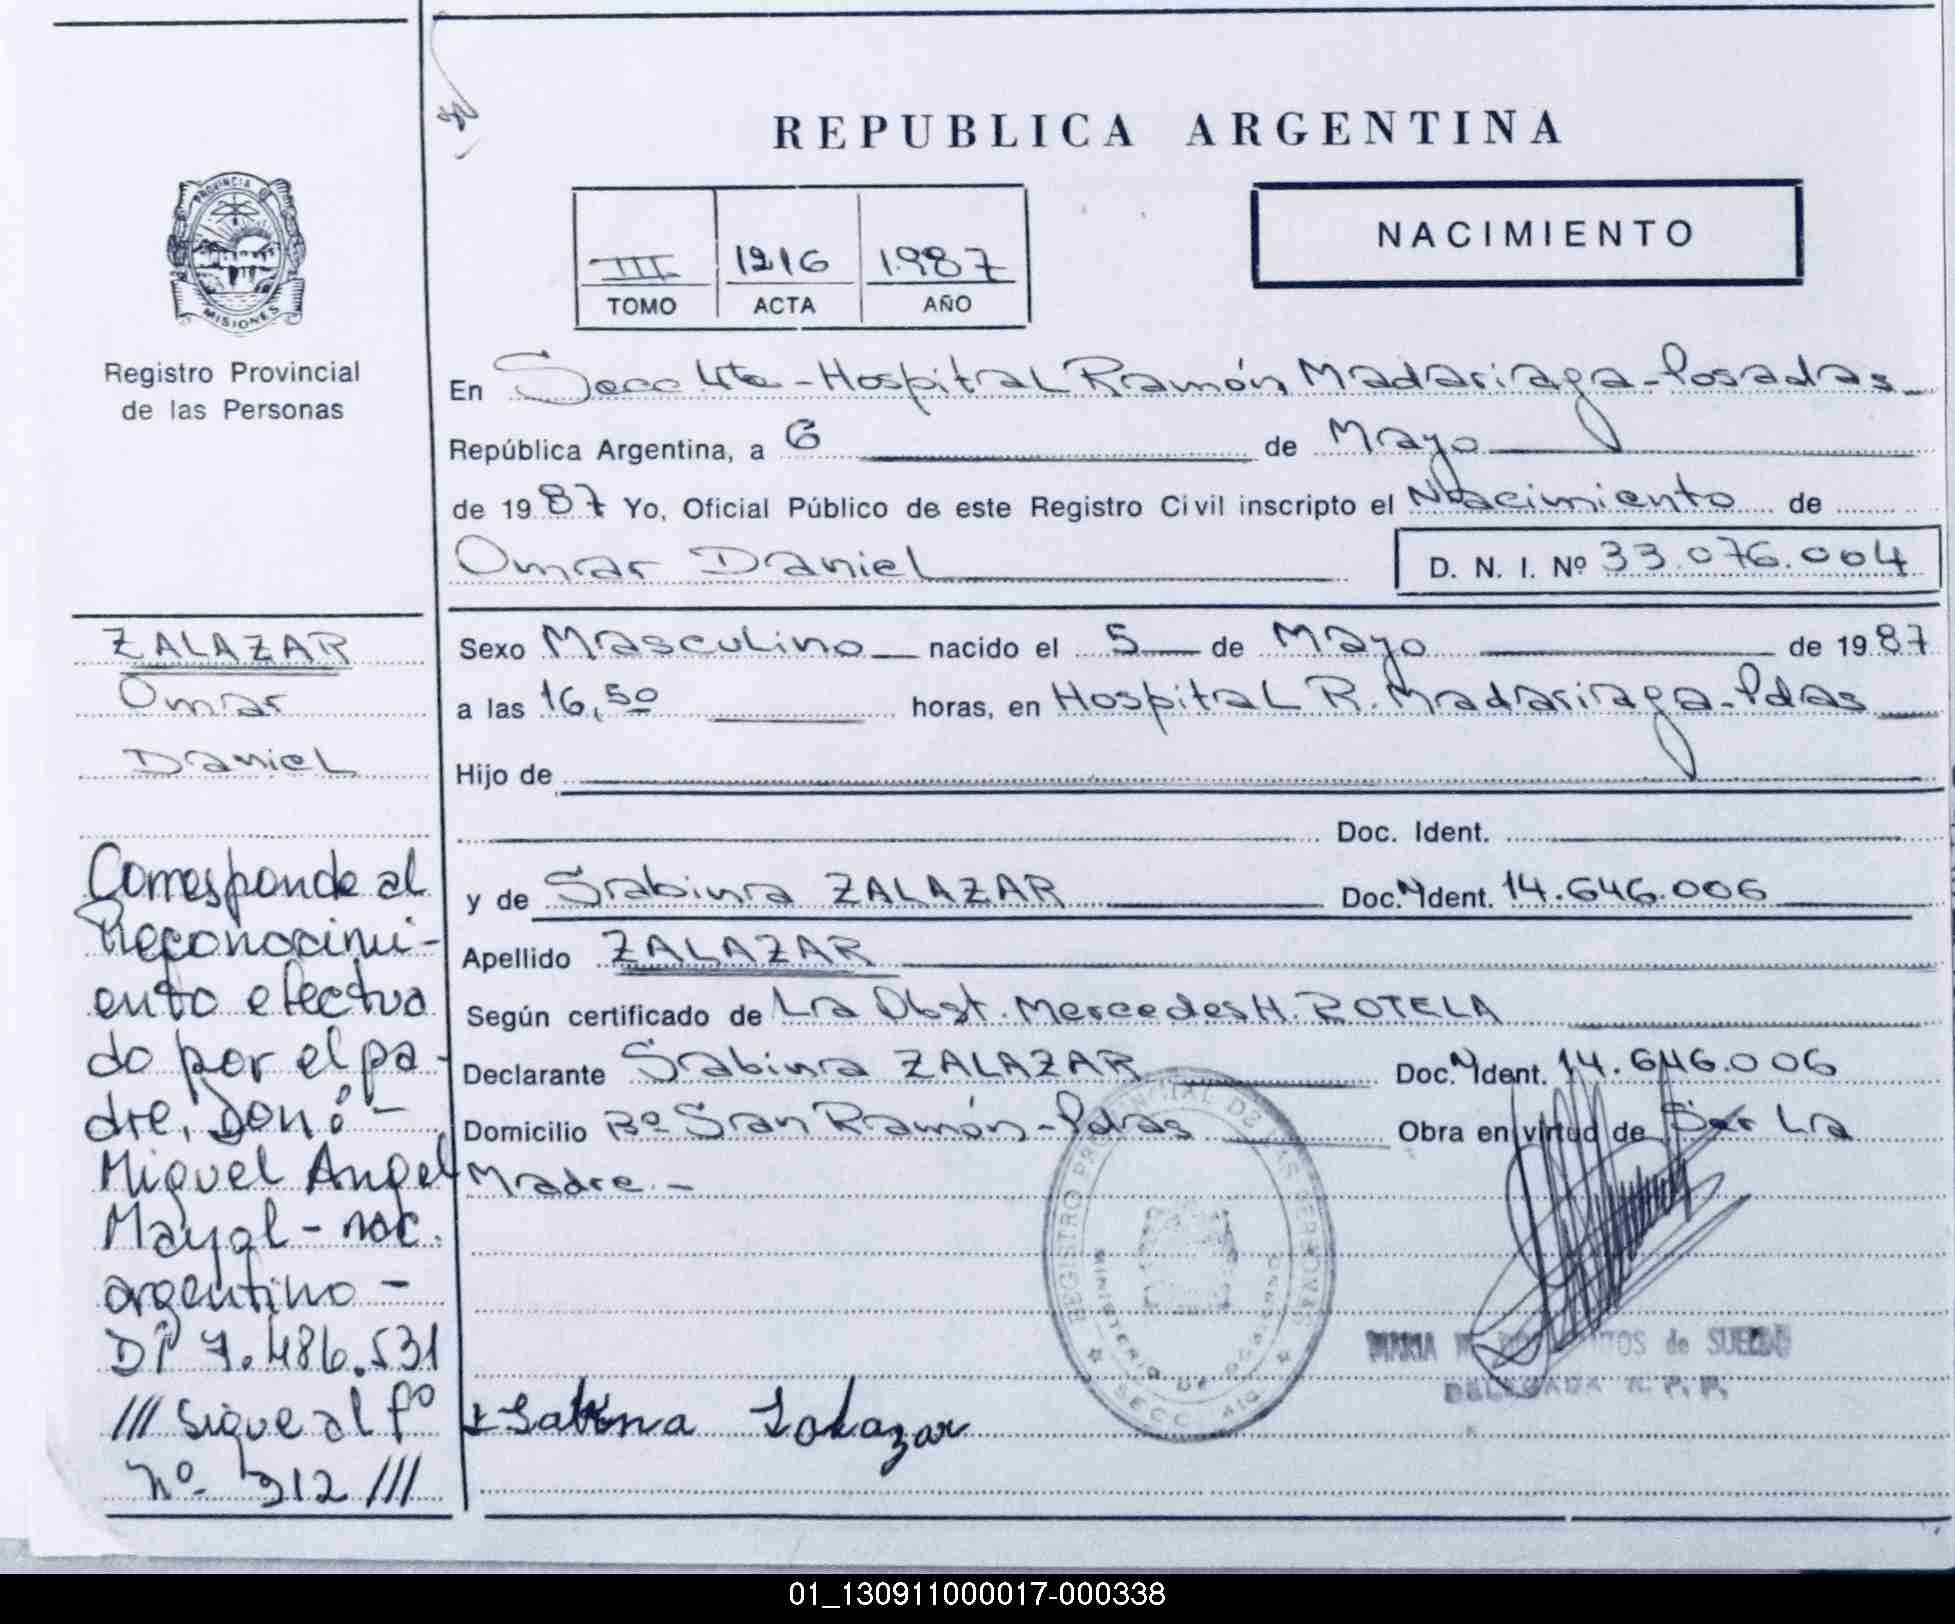 REPUBLICA ARGENTINA
NACIMIENTO
III 1216 1987
TOMO ACTA AÑO
PROVINCIA DE
MISIONES
Registro Provincial
de las Personas
En Secc 4ta - Hospital Ramón Madariaga - Posadas
República Argentina, a 6 de Mayo
de 1987 Yo, Oficial Público de este Registro Civil inscripto el Nacimiento de
Omar Daniel D. N. I. Nº 33.076.004
ZALAZAR
Omar
Daniel
Sexo Masculino nacido el 5 de Mayo de 1987
a las 16,50 horas, en Hospital R. Madariaga - Pdas
Hijo de
Doc. Ident.
y de Sabina ZALAZAR Doc. N Ident. 14.646.006
Apellido ZALAZAR
Según certificado de La Obst. Mercedes H. ROTELA
Declarante Sabina ZALAZAR Doc. N Ident. 14.646.006
Domicilio Bº San Ramón - Pdas Obra en virtud de Ser La
Madre.-
Corresponde al
Reconocimi-
ento efectua
do por el pa-
dre, Don: -
Miguel Angel
Mayol - nac.
argentino -
DI 7.486.531
/// sigue al fº
Nº 312 ///
REGISTRO PROVINCIAL DE LAS PERSONAS
MINISTERIO DE GOBIERNO
SECC. 4ta
MARIA de SUELDO
DELEGADA R. P. P.
Sabina Zalazar
01_130911000017-000338